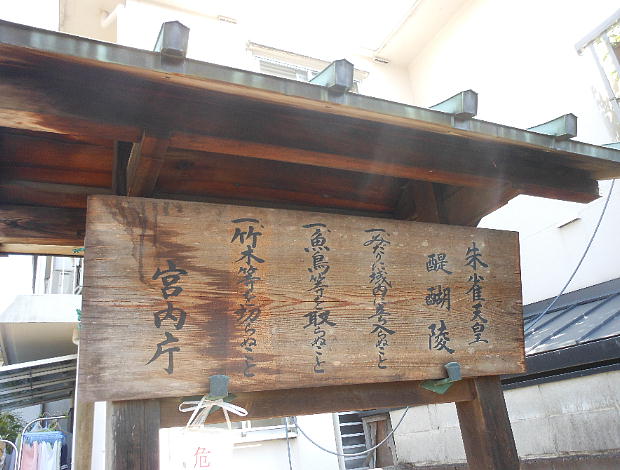 朱雀天皇
醍醐陵
一みだりに域内に立ち入らぬこと
一魚鳥等を取らぬこと
一竹木等を切らぬこと
宮内庁
危